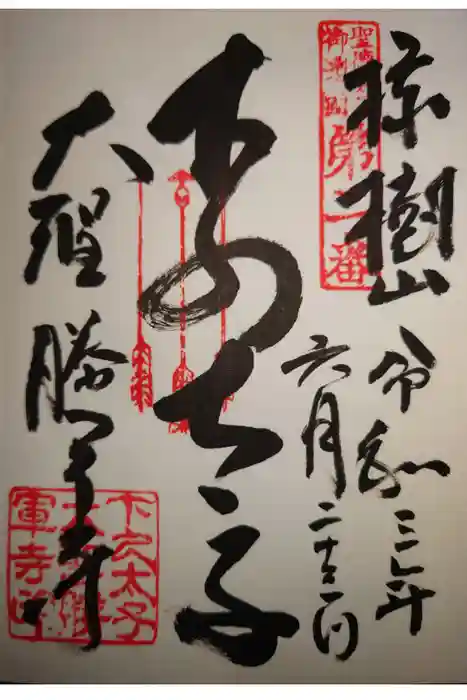 聖徳太子
御遺跡第二番
椋樹山
令和三年
六月二十二日
下の太子
大聖勝軍寺
下之太子
大聖勝
軍寺印